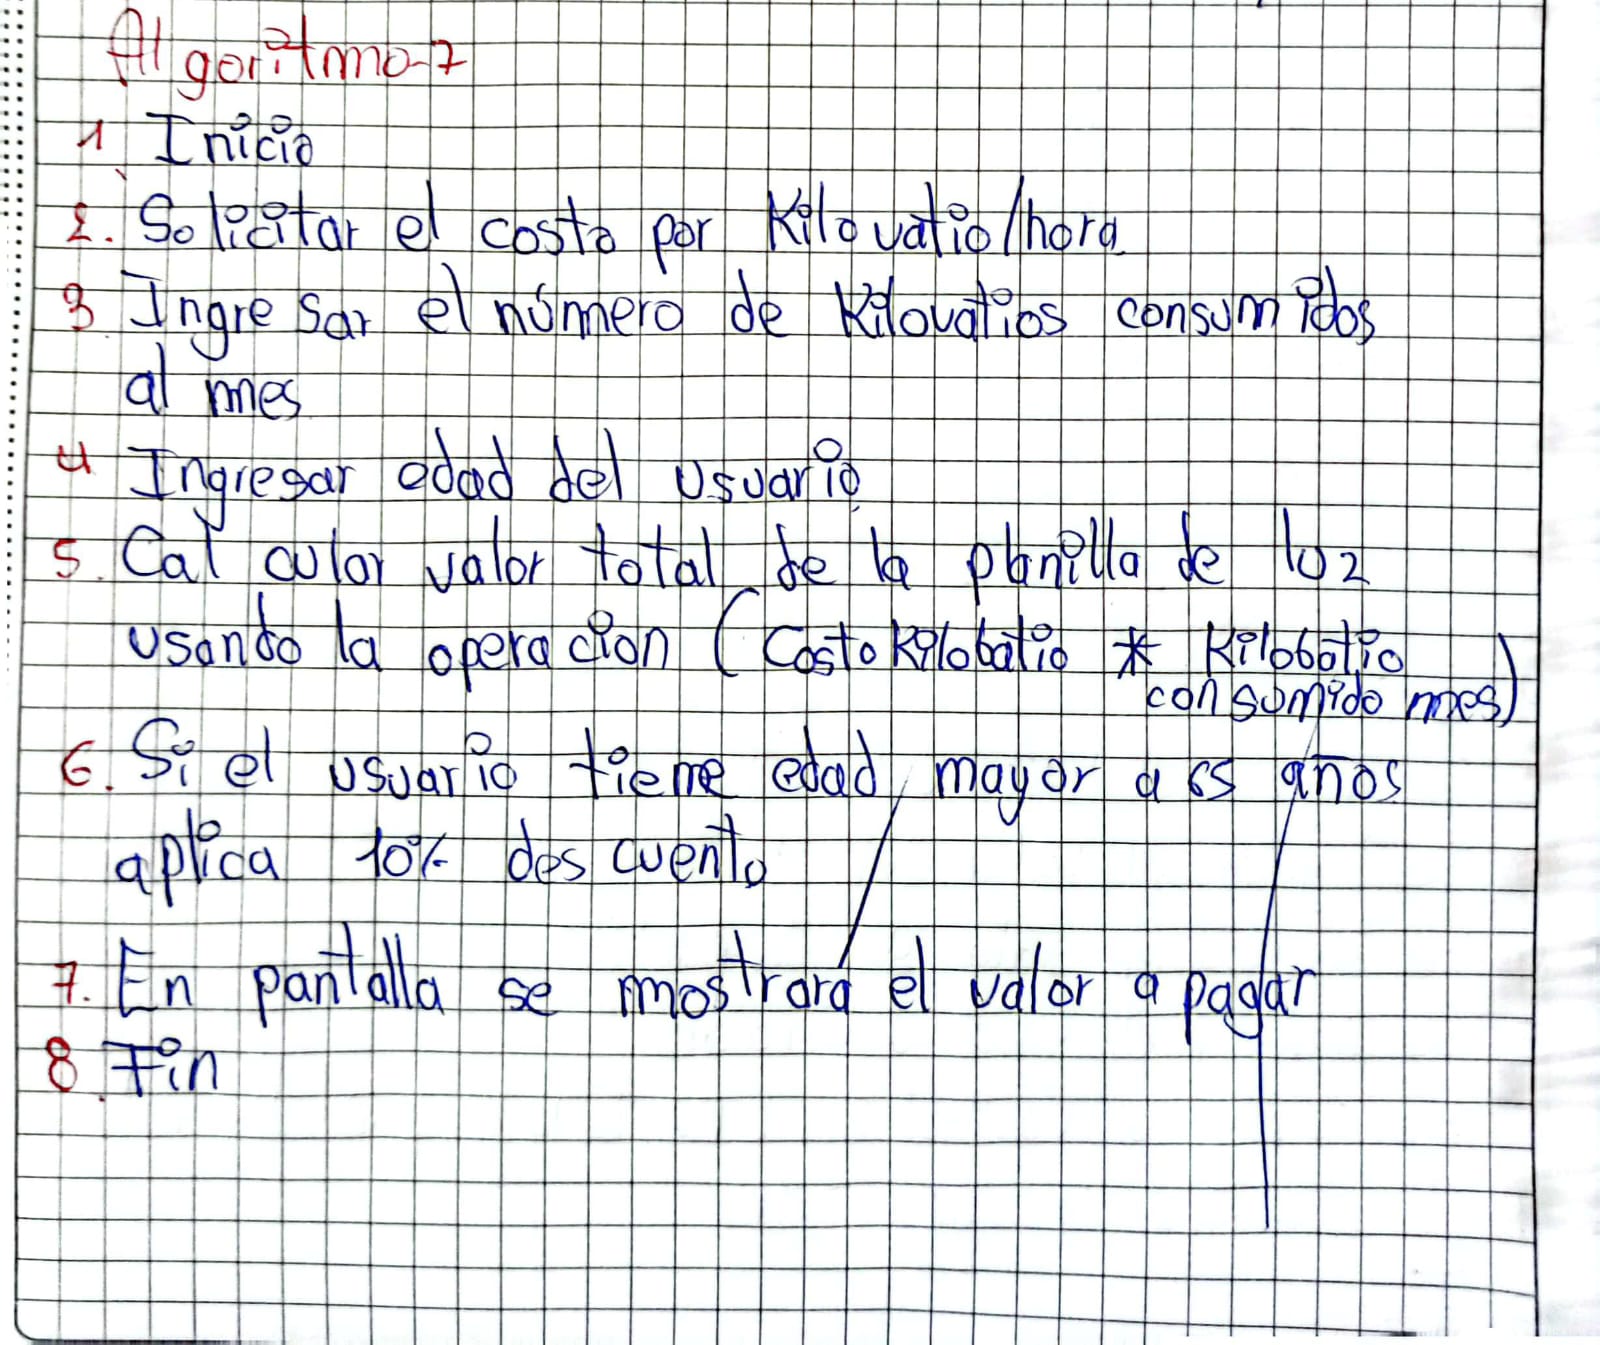 Algoritmo-7
1. Inicio
2. Solicitar el costo por Kilovatio/hora
3 Ingresar el número de Kilovatios consumidos
al mes
4 Ingresar edad del usuario
5. Calcular valor total de la planilla de luz
usando la operacion (Costo kilobatio * Kilobatio
consumido mes)
6. Si el usuario tiene edad mayor a 65 años
aplica 10% descuento
7. En pantalla se mostrará el valor a pagar
8. Fin